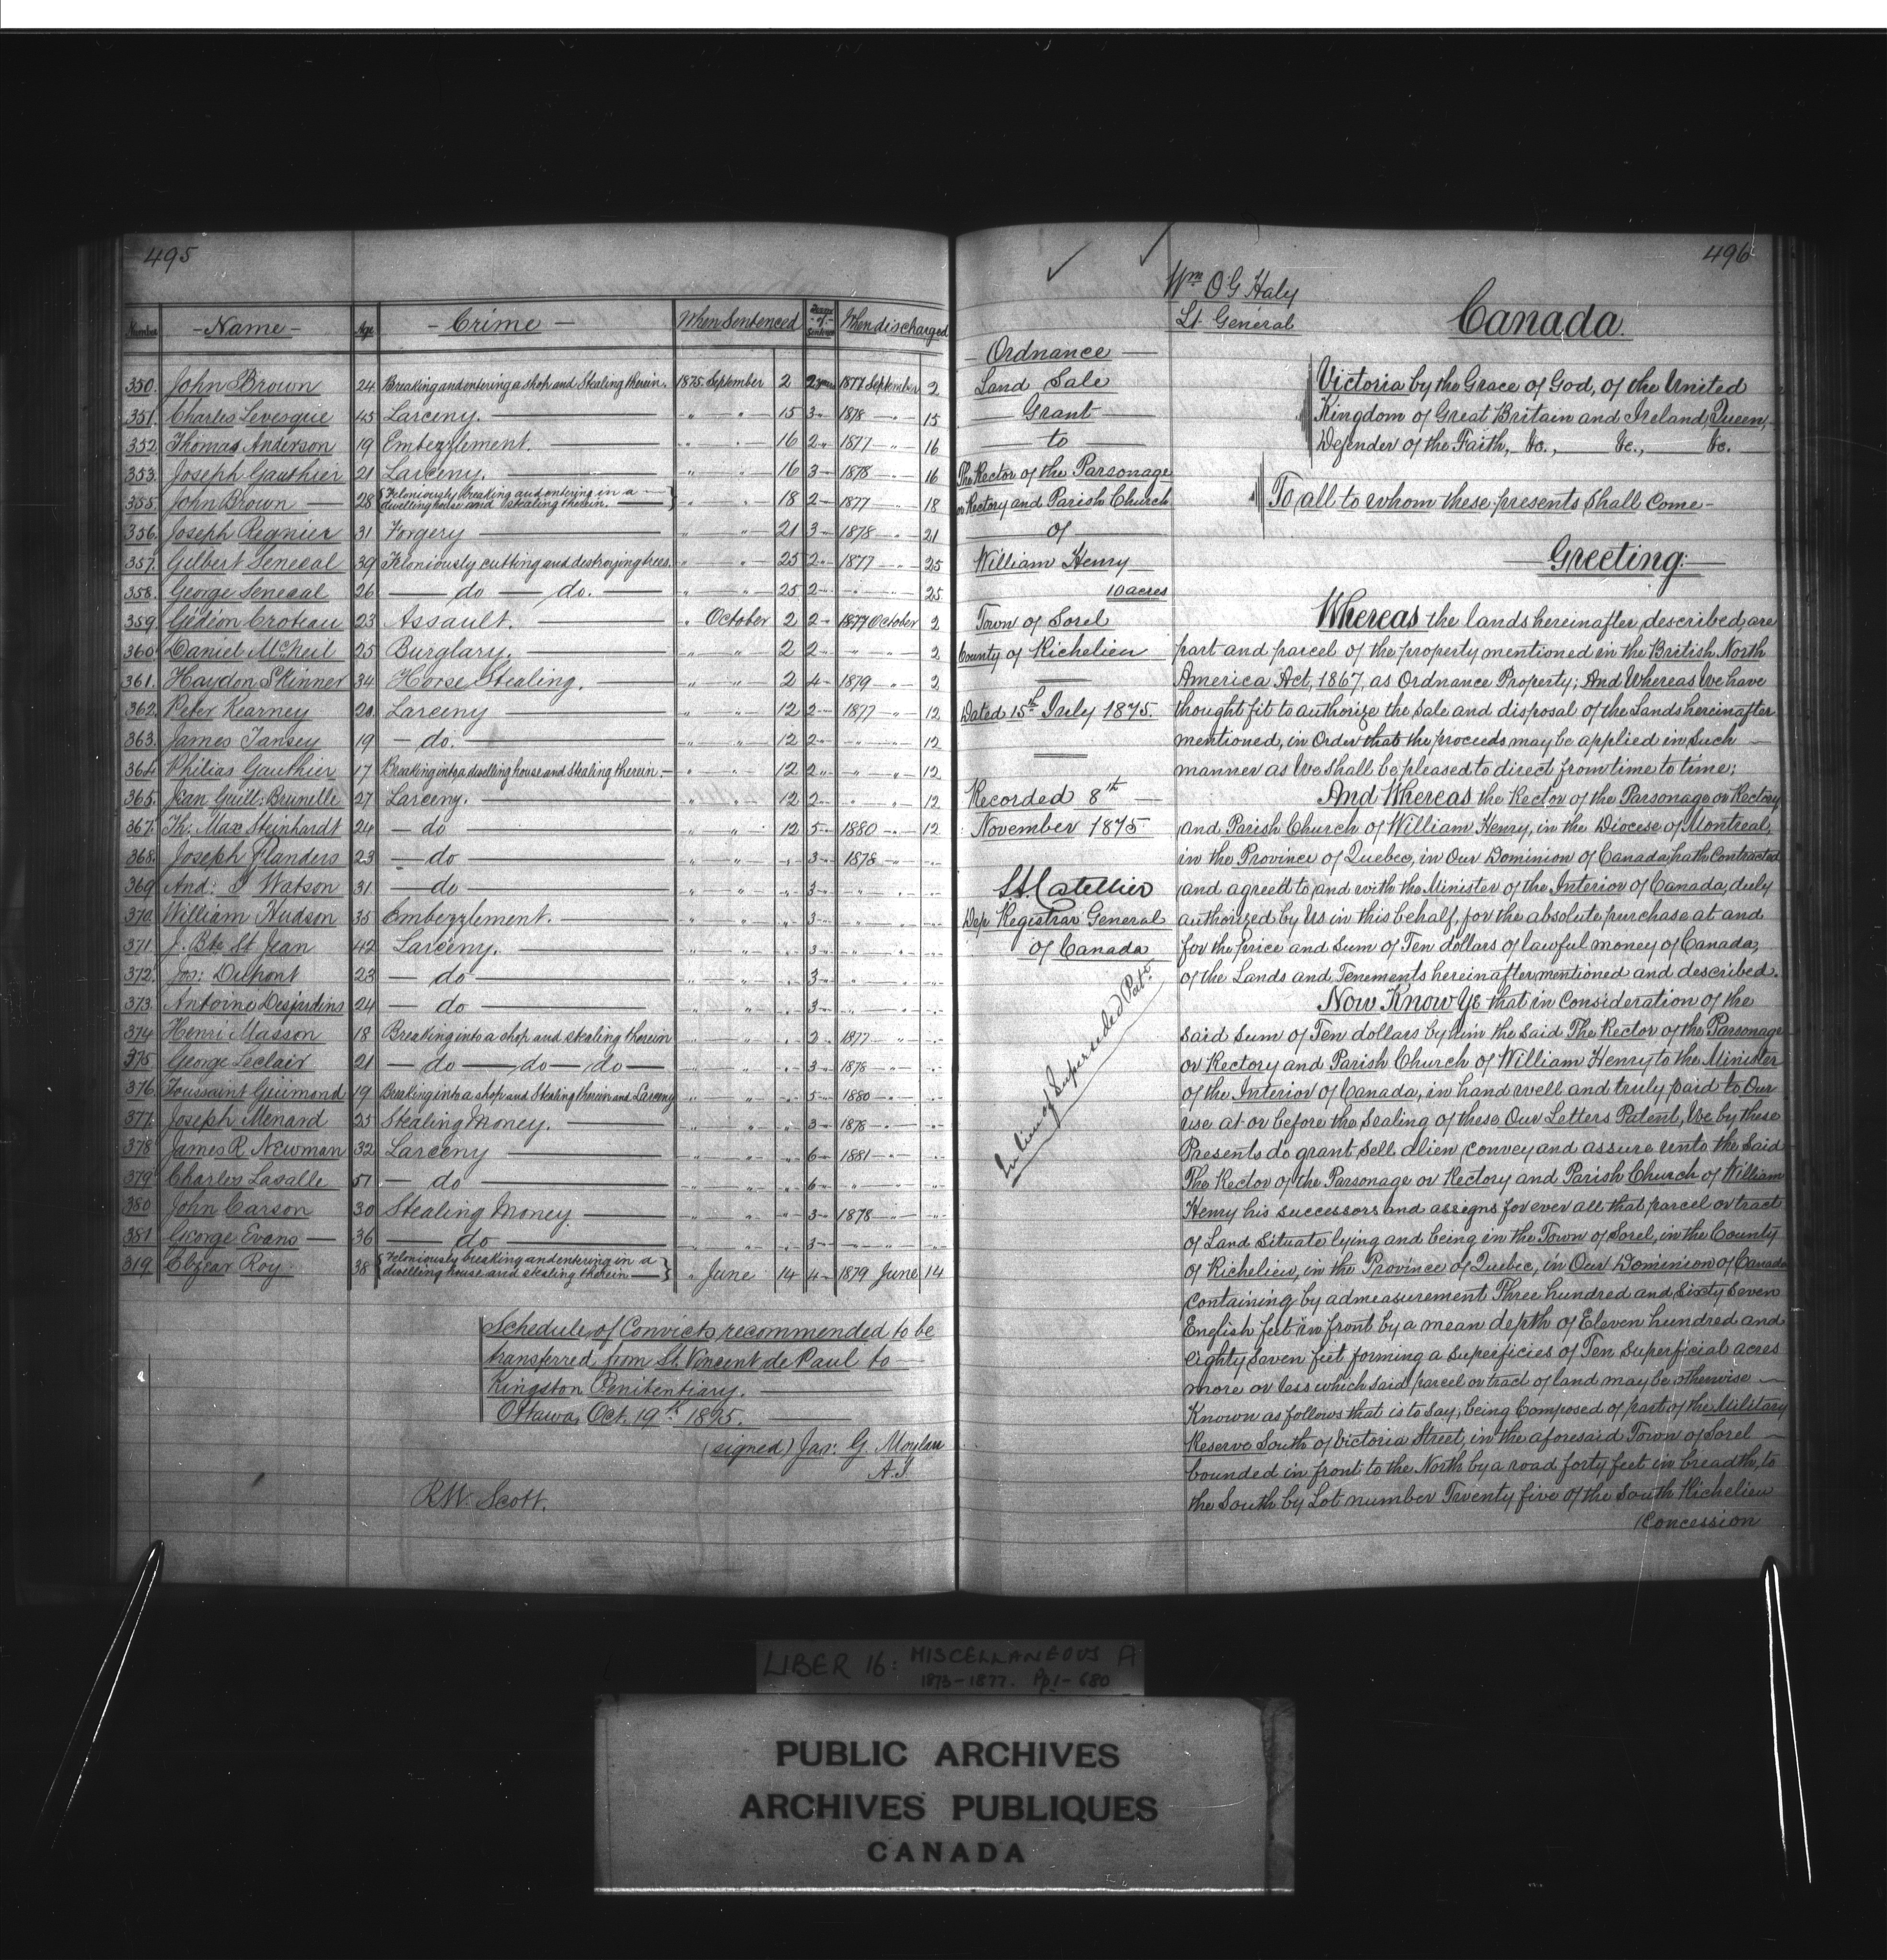 495
Number - Name - Age - Crime - When Sentenced Terms of Sentence When discharged
350. John Brown 24. Breaking and entering a shop and Stealing therein. 1875. September 2 2 years 1877 September 2
351. Charles Levesque 45 Larceny. " " 15 3 " 1878 " 15
352. Thomas Anderson 19 Embezzlement. " " 16 2 " 1877 " 16
353. Joseph Gauthier 21 Larceny. " " 16 3 " 1878 " 16
355. John Brown 28 {Feloniously breaking and entering in a dwelling house and stealing therein.} " " 18 2 " 1877 " 18
356. Joseph Regnier 31 Forgery " " 21 3 " 1878 " 21
357. Gilbert Senecal 39 Feloniously cutting and destroying trees. " " 25 2 " 1877 " 25
358. George Senecal 26 — do — do. — " " 25 2 " " " 25
359. Gédéon Croteau 23 Assault. " October 2 2 " 1877 October 2
360. Daniel McNeil 25 Burglary. " " 2 2 " " " 2
361. Haydon Skinner 34 Horse Stealing. " " 2 4 " 1879 " 2
362. Peter Kearney 20. Larceny " " 12 2 " 1877 " 12
363. James Tansey 19 — do. " " 12 2 " " " 12
364. Philias Gauthier 17 Breaking into a dwelling house and Stealing therein. " " 12 2 " " " 12
365. Jean Guill: Brunelle 27 Larceny. " " 12 2 " " " 12
367. Th: Max Steinhardt 24 — do " " 12 5 " 1880 " 12
368. Joseph Flanders 23 — do " " " 3 " 1878 " "
369 And: Watson 31 — do " " " 3 " " " "
370. William Hudson 35 Embezzlement. " " " 3 " " " "
371. J. Bte St Jean 42 Larceny. " " " 3 " " " "
372. Jos: Dupont 23 — do " " " 3 " " " "
373. Antoine Desjardins 24 — do " " " 3 " " " "
374 Henri Masson 18 Breaking into a shop and stealing therein " " " 2 " 1877 " "
375 George Leclair 21 — do — do — do — " " " 3 " 1878 " "
376. Toussaint Guimond 19 Breaking into a shop and Stealing therein and Larceny " " " 5 " 1880 " "
377. Joseph Menard 25 Stealing Money. " " " 3 " 1878 " "
378 James R. Newman 32 Larceny " " " 6 " 1881 " "
379 Charles Lasalle 51 — do " " " 6 " " " "
380 John Carson 30 Stealing Money " " " 3 " 1878 " "
381 George Evans 36 — do " " " 3 " " " "
319. Elzéar Roy. 38 {Feloniously breaking and entering in a dwelling house and stealing therein} " June 14 4 " 1879 June 14
Schedule of Convicts recommended to be
transferred from St. Vincent de Paul to
Kingston Penitentiary.
Ottawa, Oct. 19th 1875.
(signed) Jas: G. Moylan
A.I.
R.W. Scott.
496
Wm O'G Haly
Lt General
Ordnance
Land Sale
Grant
to
The Rector of the Parsonage
or Rectory and Parish Church
of
William Henry
10 acres
Town of Sorel
County of Richelieu
Dated 15th July 1875.
Recorded 8th
November 1875
L.A. Catellier
Dep Registrar General
of Canada
In lieu of Superseded Pat.
Canada.
Victoria by the Grace of God, of the United
Kingdom of Great Britain and Ireland, Queen,
Defender of the Faith, &c., &c., &c.
To all to whom these presents shall Come-
Greeting:
Whereas the lands hereinafter described, are
part and parcel of the property mentioned in the British North
America Act, 1867, as Ordnance Property; And Whereas We have
thought fit to authorize the sale and disposal of the Lands hereinafter
mentioned, in Order that the proceeds may be applied in such
manner as We shall be pleased to direct from time to time;
And Whereas the Rector of the Parsonage or Rectory
and Parish Church of William Henry, in the Diocese of Montreal,
in the Province of Quebec, in Our Dominion of Canada, hath contracted
and agreed to and with the Minister of the Interior of Canada, duly
authorized by Us in this behalf, for the absolute purchase at and
for the Price and Sum of Ten dollars of lawful money of Canada,
of the Lands and Tenements hereinafter mentioned and described.
Now Know Ye that in consideration of the
said Sum of Ten dollars by him the said The Rector of the Parsonage
or Rectory and Parish Church of William Henry to the Minister
of the Interior of Canada, in hand well and truly paid to Our
use at or before the Sealing of these Our Letters Patent, We by these
Presents do grant Sell alien convey and assure unto the Said
The Rector of the Parsonage or Rectory and Parish Church of William
Henry his successors and assigns for ever all that parcel or tract
of Land Situate lying and being in the Town of Sorel, in the County
of Richelieu, in the Province of Quebec, in Our Dominion of Canada
containing by admeasurement Three hundred and Sixty Seven
English feet in front by a mean depth of Eleven hundred and
eighty seven feet forming a Superficies of Ten Superficial acres
more or less which said parcel or tract of land may be otherwise
Known as follows that is to Say; being Composed of part of the Military
Reserve South of Victoria Street, in the aforesaid Town of Sorel
bounded in front to the North by a road forty feet in breadth, to
the South by Lot number Twenty five of the South Richelieu
Concession
LIBER 16: MISCELLANEOUS A
1873-1877. Pp 1-680
PUBLIC ARCHIVES
ARCHIVES PUBLIQUES
CANADA